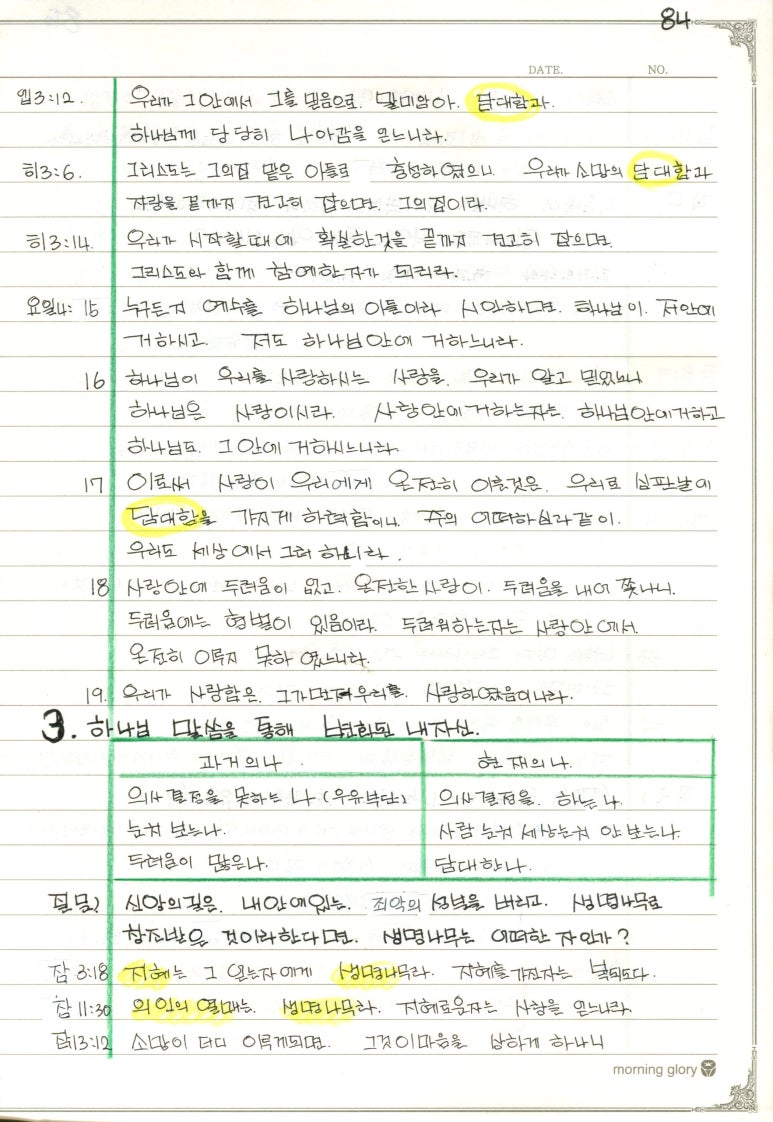 84
DATE. NO.
엡3:12. 우리가 그안에서 그를 믿음으로. 말미암아. 담대함과.
하나님께 당당히 나아감을 얻느니라.
히3:6. 그리스도는 그의집 맡은 아들로 충성하였으니 우리가 소망의 담대함과
자랑을 끝까지 견고히 잡으면. 그의집이라.
히3:14. 우리가 시작할때에 확실한것을 끝까지 견고히 잡으면.
그리스도와 함께 참예한자가 되리라.
요일4: 15 누구든지 예수를 하나님의 아들이라 시인하면. 하나님이. 저안에
거하시고. 저도 하나님안에 거하느니라.
16 하나님이 우리를 사랑하시는 사랑을. 우리가 알고 믿었노니
하나님은 사랑이시라. 사랑안에거하는자는. 하나님안에거하고
하나님도. 그안에 거하시느니라.
17 이로써 사랑이 우리에게 온전히 이룬것은. 우리로 심판날에
담대함을 가지게 하려함이니. 주의 어떠하심과 같이.
우리도 세상에서 그러 하니라.
18 사랑안에 두려움이 없고. 온전한 사랑이. 두려움을 내어 쫓나니.
두려움에는 형벌이 있음이라. 두려워하는자는 사랑안에서.
온전히 이루지 못하 였느니라.
19. 우리가 사랑함은. 그가먼저우리를. 사랑하였음이니라.
3. 하나님 말씀을 통해 변화된 내자신.
과거의나. 현재의나.
의사결정을 못하는 나 (우유부단) 의사결정을. 하는 나.
눈치 보는나. 사람 눈치 세상눈치 안 보는나.
두려움이 많은나. 담대한나.
질문2 신앙의길은. 내안에있는. 죄악의 성벽을 버리고. 생명나무로
창조받은 것이라한다면. 생명나무는 어떠한 자인가?
잠 3:18 지혜는 그 얻는자에게 생명나무라. 지혜를가진자는 복되도다.
잠 11:30 의인의 열매는. 생명나무라. 지혜로운자는 사람을 얻느니라
잠13:12 소망이 더디 이루게되면. 그것이마음을 상하게 하나니
morning glory